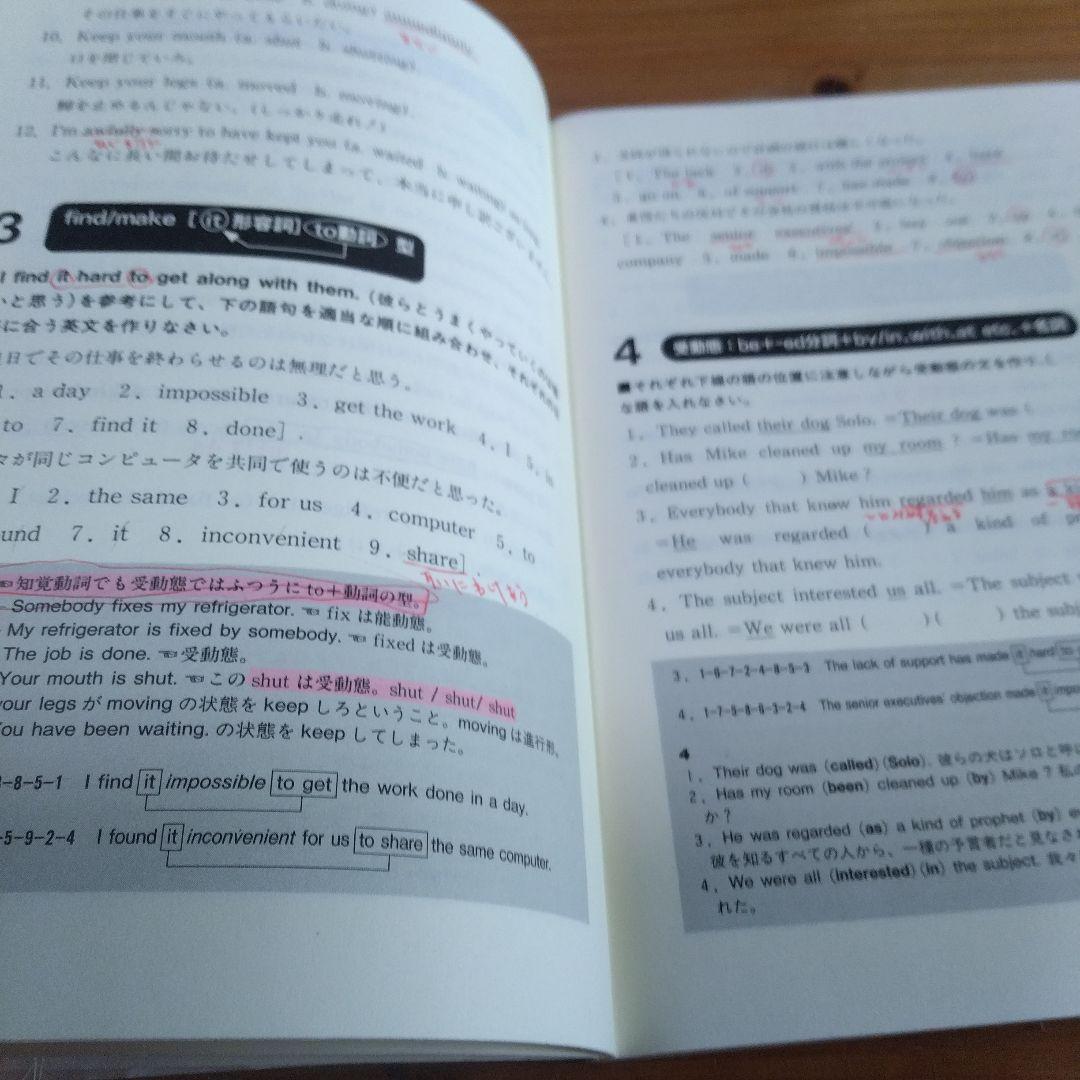 その仕事をすぐにやってもらいたい。
10. Keep your mouth (a. shut b. shutting).
口を閉じていろ。
11. Keep your legs (a. moved b. moving).
脚を止めるんじゃない。(しっかり走れ！)
12. I'm awfully sorry to have kept you (a. waited b. waiting) so long.
こんなに長い間お待たせしてしまって、本当に申し訳ございません。
3 find/make [it 形容詞] to動詞 型
I find it hard to get along with them. (彼らとうまくやっていくのは
いと思う)を参考にして、下の語句を適当な順に組み合わせ、それぞれ
に合う英文を作りなさい。
日でその仕事を終わらせるのは無理だと思う。
1. a day 2. impossible 3. get the work 4. I 5. in
to 7. find it 8. done].
々が同じコンピュータを共同で使うのは不便だと思った。
I 2. the same 3. for us 4. computer 5. to
und 7. it 8. inconvenient 9. share].
互いにわけあう
☜知覚動詞でも受動態ではふつうにto＋動詞の型。
Somebody fixes my refrigerator. ☜ fix は能動態。
My refrigerator is fixed by somebody. ☜ fixed は受動態。
The job is done. ☜受動態。
Your mouth is shut. ☜この shut は受動態。shut / shut/ shut
your legs が moving の状態を keep しろということ。moving は進行形、
You have been waiting. の状態を keep してしまった。
-8-5-1 I find it impossible to get the work done in a day.
-5-9-2-4 I found it inconvenient for us to share the same computer.
[1. The lack 3. with the project
5. go on 6. of support 7. has made
[1. The senior executives' 2. buy out
company 5. made 6. impossible 7. objection
4 受動態：be＋-ed分詞＋by/in, with, at etc.＋名詞
■それぞれ下線の語の位置に注意しながら受動態の文を作り、(
な語を入れなさい。
1. They called their dog Solo. =Their dog was (
2. Has Mike cleaned up my room ? =Has my room
cleaned up ( ) Mike ?
3. Everybody that knew him regarded him as a k
=He was regarded ( ) a kind of p
everybody that knew him.
4. The subject interested us all. =The subject
us all. =We were all ( )( ) the subj
3. 1-6-7-2-4-8-5-3 The lack of support has made it hard to
4. 1-7-5-8-6-3-2-4 The senior executives' objection made it impo
4
1. Their dog was (called) (Solo). 彼らの犬はソロと呼
2. Has my room (been) cleaned up (by) Mike ? 私の
か？
3. He was regarded (as) a kind of prophet (by) ev
彼を知るすべての人から、一種の予言者だと見なさ
4. We were all (interested) (in) the subject. 我々
れた。